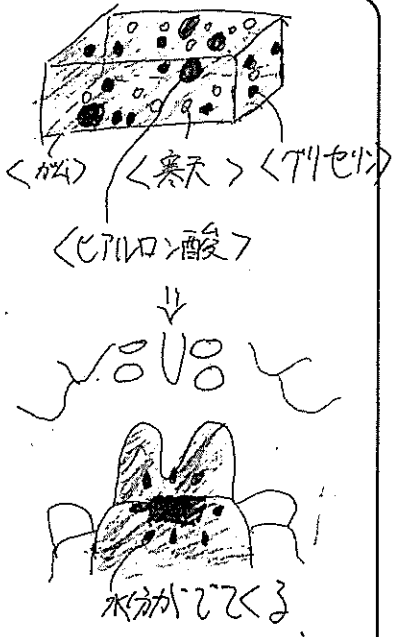 <ガム> <寒天> <グリセリン>
<ヒアルロン酸>
水分がでてくる